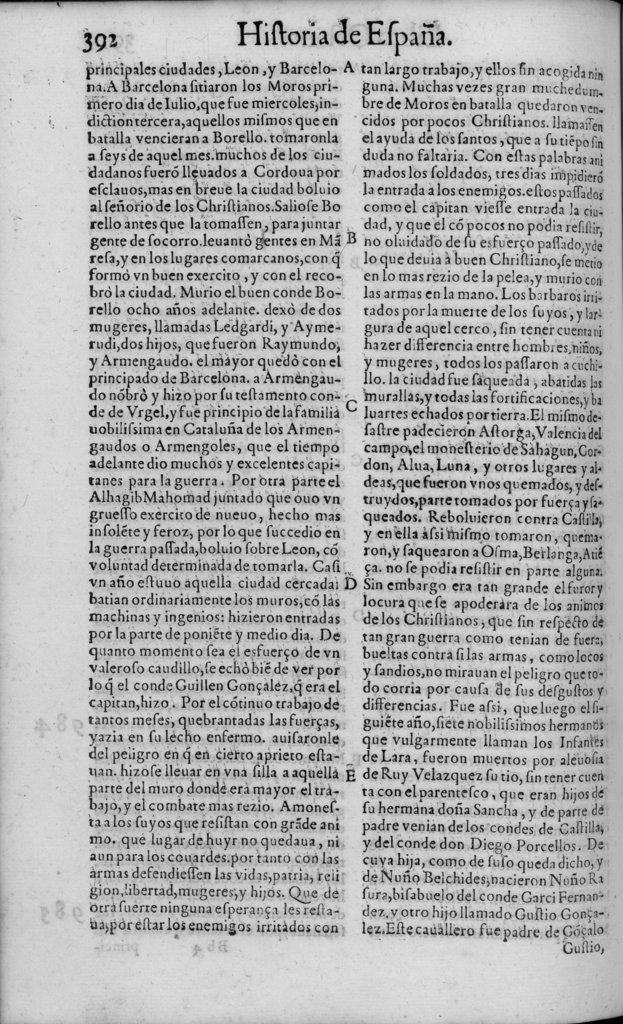 392 Hiſtoria de Eſpaña.
principales ciudades, Leon, y Barcelo-
na. A Barcelona ſitiaron los Moros pri-
mero dia de Iulio, que fue miercoles, in-
diction tercera, aquellos miſmos que en
batalla vencieran a Borello. tomaronla
a ſeys de aquel mes. muchos de los ciu-
dadanos fueró lleuados a Cordoua por
eſclauos, mas en breue la ciudad boluio
al ſeñorio de los Chriſtianos. Salioſe Bo
rello antes que la tomaſſen, para juntar
gente de ſocorro. leuantò gentes en Mã
reſa, y en los lugares comarcanos, con q̃
formò vn buen exercito, y con el reco-
brò la ciudad. Murio el buen conde Bo-
rello ocho años adelante. dexò de dos
mugeres, llamadas Ledgardi, y Ayme-
rudi, dos hijos, que fueron Raymundo,
y Armengaudo. el mayor quedò con el
principado de Barcelona. a Armengau-
do nóbrò y hizo por ſu teſtamento con-
de de Vrgel, y fue principio de la familia
nobiliſsima en Cataluña de los Armen-
gaudos o Armengoles, que el tiempo
adelante dio muchos y excelentes capi-
tanes para la guerra. Por otra parte el
Alhagib Mahomad juntado que ouo vn
grueſſo exercito de nueuo, hecho mas
inſoléte y feroz, por lo que ſuccedio en
la guerra paſſada, boluio ſobre Leon, có
voluntad determinada de tomarla. Caſi
vn año eſtuuo aquella ciudad cercada:
batian ordinariamente los muros, có las
machinas y ingenios: hizieron entradas
por la parte de poniéte y medio dia. De
quanto momento ſea el esfuerço de vn
valeroſo caudillo, ſe echò bié de ver por
lo q̃ el conde Guillen Gonçalez, q̃ era el
capitan, hizo. Por el cótinuo trabajo de
tantos meſes, quebrantadas las fuerças,
yazia en ſu lecho enfermo. auiſaronle
del peligro en q̃ en cierto aprieto eſta-
uan. hizoſe lleuar en vna ſilla a aquella
parte del muro donde era mayor el tra-
bajo, y el combate mas rezio. Amoneſ-
ta a los ſuyos que reſiſtan con grãde ani
mo. que lugar de huyr no quedaua, ni
aun para los couardes. por tanto con las
armas defendieſſen las vidas, patria, reli
gion, libertad, mugeres, y hijos. Que de
otra ſuerte ninguna eſperança les reſta-
ua, por eſtar los enemigos irritados con
A
B
C
D
E
tan largo trabajo, y ellos ſin acogida nin
guna. Muchas vezes gran muchedum-
bre de Moros en batalla quedaron ven-
cidos por pocos Chriſtianos. llamaſſen
el ayuda de los ſantos, que a ſu tiépo ſin
duda no faltaria. Con eſtas palabras ani
mados los ſoldados, tres dias impidieró
la entrada a los enemigos. eſtos paſſados
como el capitan vieſſe entrada la ciu-
dad, y que el có pocos no podia reſiſtir,
no oluidado de ſu esfuerço paſſado, y de
lo que deuia à buen Chriſtiano, ſe metio
en lo mas rezio de la pelea, y murio con
las armas en la mano. Los barbaros irri-
tados por la muerte de los ſuyos, y lar-
gura de aquel cerco, ſin tener cuenta ni
hazer differencia entre hombres, niños,
y mugeres, todos los paſſaron a cuchi-
llo. la ciudad fue ſaqueada, abatidas las
murallas, y todas las fortificaciones, y ba
luartes echados por tierra. El miſmo de-
ſaſtre padecieron Aſtorga, Valencia del
campo, el monesterio de Sahagun, Gor-
don, Alua, Luna, y otros lugares y al-
deas, que fueron vnos quemados, y deſ-
truydos, parte tomados por fuerça y ſa-
queados. Reboluieron contra Caſtilla,
y en ella aſsi miſmo tomaron, quema-
ron, y ſaquearon a Oſma, Berlanga, Atié
ça. no ſe podia reſiſtir en parte alguna.
Sin embargo era tan grande el furor y
locura que ſe apoderàra de los animos
de los Chriſtianos, que ſin reſpeto de
tan gran guerra como tenian de fuera,
bueltas contra ſi las armas, como locos
y ſandios, no mirauan el peligro que to-
do corria por cauſa de ſus deſguſtos y
differencias. Fue aſsi, que luego el ſi-
guiéte año, ſiete nobiliſsimos hermanos
que vulgarmente llaman los Infantes
de Lara, fueron muertos por aleuoſia
de Ruy Velazquez ſu tio, ſin tener cuen
ta con el parenteſco, que eran hijos de
ſu hermana doña Sancha, y de parte de
padre venian de los condes de Caſtilla,
y del conde don Diego Porcellos. De
cuya hija, como de ſuſo queda dicho, y
de Nuño Belchides, nacieron Nuño Ra
ſura, biſabuelo del conde Garci Fernan-
dez, y otro hijo llamado Guſtio Gonça-
lez. Eſte cauallero fue padre de Góçalo
Guſtio,